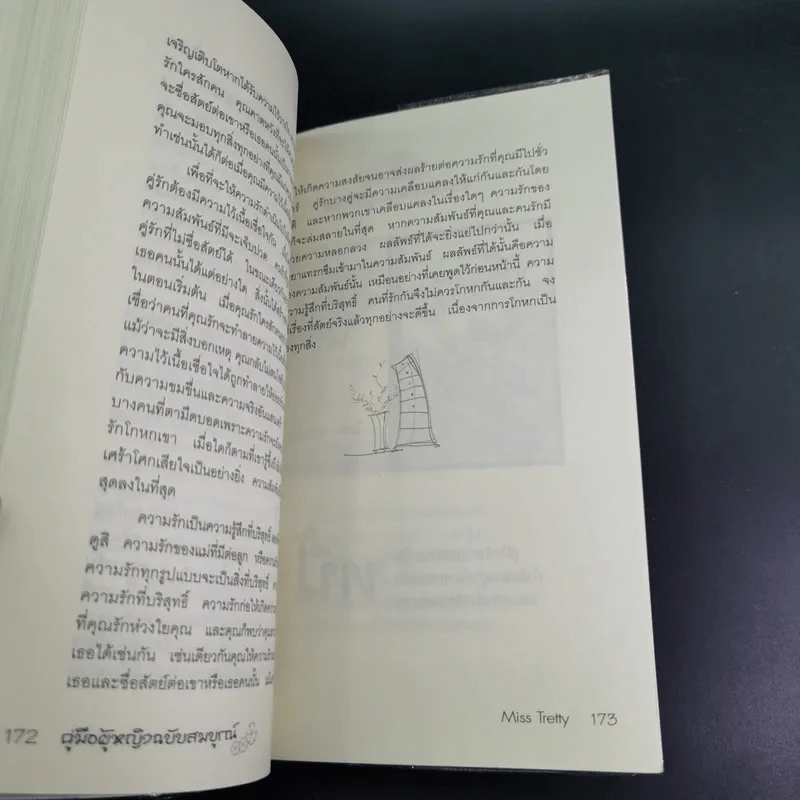 เจริญเติบโตหากได้รับความไว้วาง
รักใครสักคน คุณคาดหวังที่จะได้
จะซื่อสัตย์ต่อเขาหรือเธอคนนั้น
คุณจะมอบทุกสิ่งทุกอย่างที่คุณ
ทำเช่นนั้นได้ก็ต่อเมื่อคุณมีความ
เพื่อที่จะให้ความรักดำเนิน
คู่รักต้องมีความไว้เนื้อเชื่อใจกัน
ความสัมพันธ์ที่มีจะเจ็บปวด
คู่รักที่ไม่ซื่อสัตย์ได้ ในขณะเดียว
เธอคนนั้นได้แต่อย่างใด สิ่งนั้นได้
ในตอนเริ่มต้น เมื่อคุณรักใครสักคน
เชื่อว่าคนที่คุณรักจะทำลายความไว้
แม้ว่าจะมีสิ่งบอกเหตุ คุณกลับไม่
ความไว้เนื้อเชื่อใจได้ถูกทำลายให้
กับความขมขื่นและความจริงอัน
บางคนที่ตามืดบอดเพราะความรักจะ
รักโกหกเขา เมื่อใดก็ตามที่เขารู้ซึ้ง
เศร้าโศกเสียใจเป็นอย่างยิ่ง ความ
สุดลงในที่สุด
ความรักเป็นความรู้สึกที่บริสุทธิ์
ดูสิ ความรักของแม่ที่มีต่อลูก หรือ
ความรักทุกรูปแบบจะเป็นสิ่งที่บริสุทธิ์
ความรักที่บริสุทธิ์ ความรักก่อให้เกิด
ที่คุณรักห่วงใยคุณ และคุณก็พบว่าคุณ
เธอได้เช่นกัน เช่นเดียวกันคุณให้ความ
เธอและซื่อสัตย์ต่อเขาหรือเธอคนนั้น
172 คู่มือผู้หญิงฉบับสมบูรณ์
ให้เกิดความสงสัยจนอาจส่งผลร้ายต่อความรักที่คุณมีไปชั่ว
คู่รักบางคู่จะมีความเคลือบแคลงให้แก่กันและกันโดย
และหากพวกเขาเคลือบแคลงในเรื่องใดๆ ความรักของ
จะล่มสลายในที่สุด หากความสัมพันธ์ที่คุณและคนรักมี
ด้วยความหลอกลวง ผลลัพธ์ที่ได้จะยิ่งแย่ไปกว่านั้น เมื่อ
ยาแทรกซึมเข้ามาในความสัมพันธ์ ผลลัพธ์ที่ได้นั้นคือความ
ของความสัมพันธ์นั้น เหมือนอย่างที่เคยพูดไว้ก่อนหน้านี้ ความ
รู้สึกที่บริสุทธิ์ คนที่รักกันจึงไม่ควรโกหกกันและกัน จง
เรื่องที่สัตย์จริงแล้วทุกอย่างจะดีขึ้น เนื่องจากการโกหกเป็น
ทุกสิ่ง
Miss Tretty 173